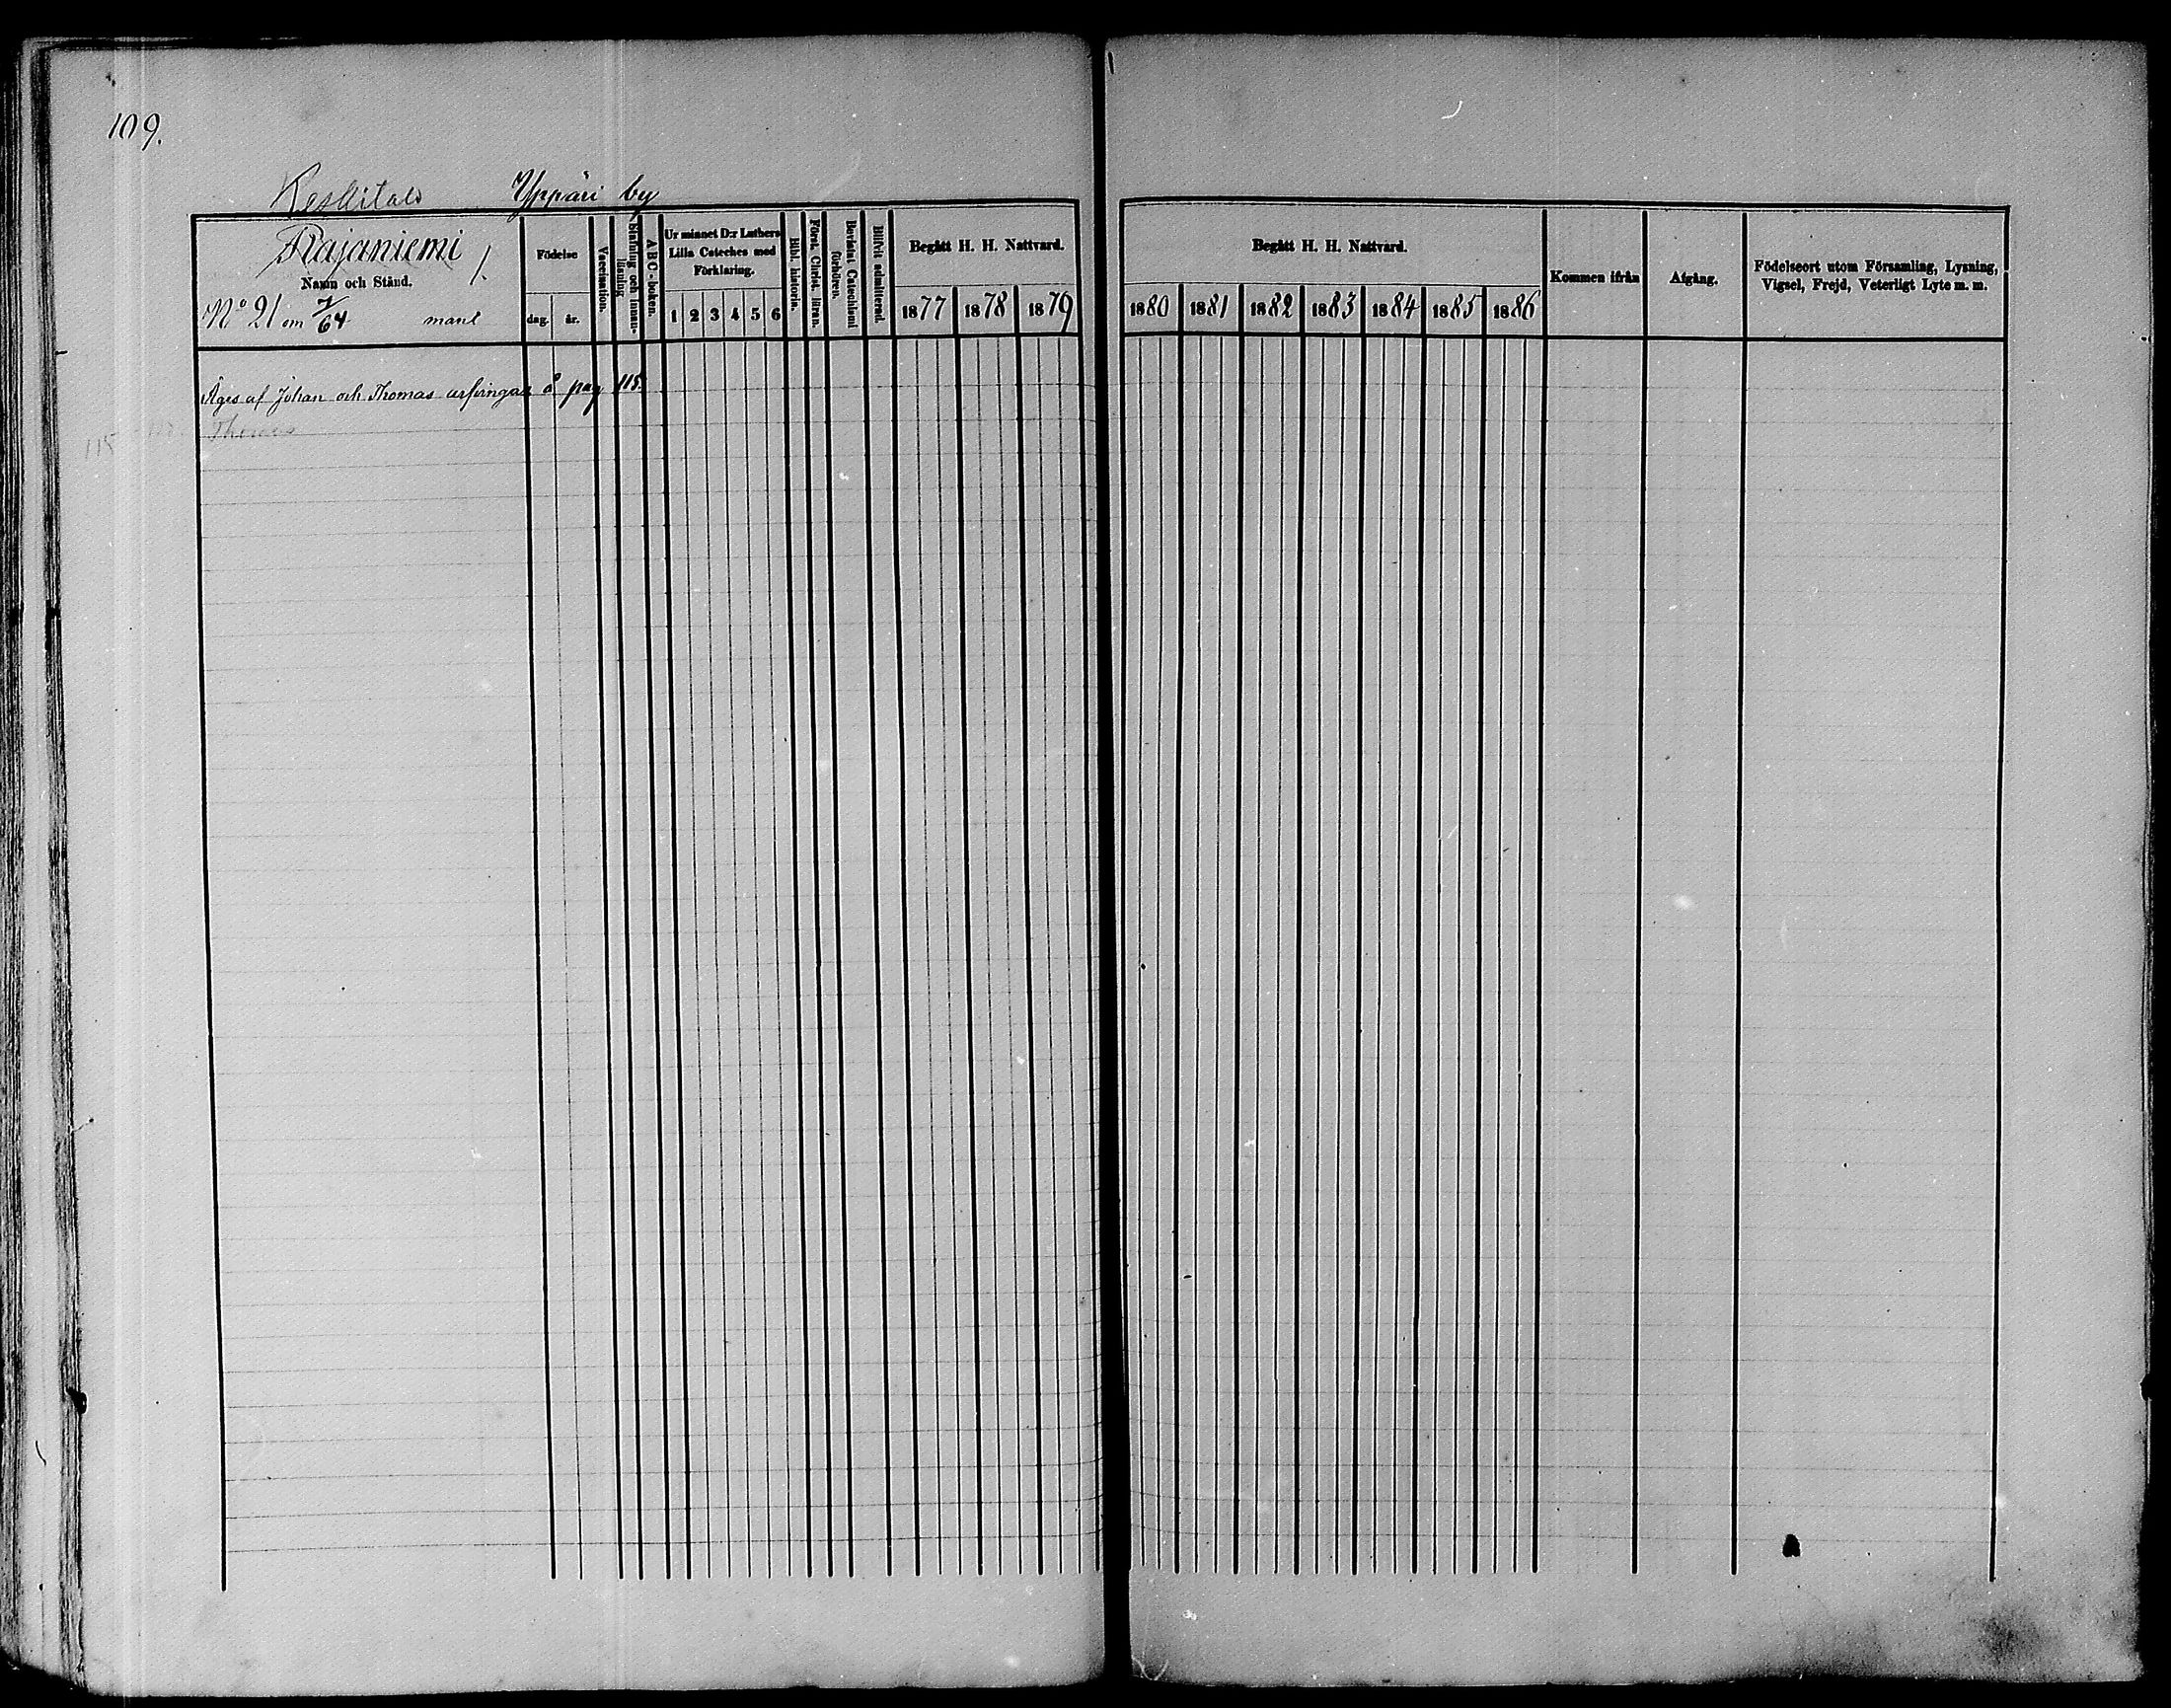 109.
Keskitalo Yppäri by
Rajaniemi
Namn och Stånd.
No 21 om 7/64 mantl
Födelse
dag. år.
Vaccination.
Stafning och innanläsning
ABC-boken.
Ur minnet D:r Luthers Lilla Cateches med Förklaring.
1 2 3 4 5 6
Bibl. historia.
Först. Christ. läran.
Bevistat Catechismi förhören.
Blifvit admitterad.
Begått H. H. Nattvard.
1877 1878 1879
Begått H. H. Nattvard.
1880 1881 1882 1883 1884 1885 1886
Kommen ifrån
Afgång.
Födelseort utom Församling, Lysning,
Vigsel, Frejd, Veterligt Lyte m. m.
Äges af Johan och Thomas arfvingar å pag 115.
115
Thomas